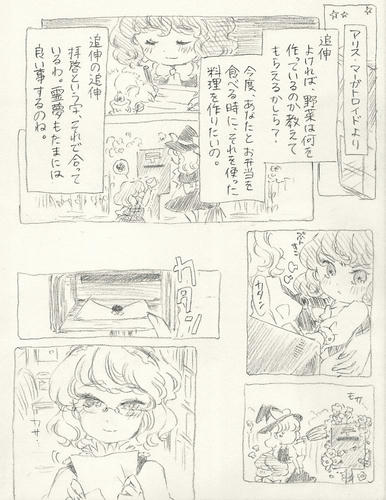 アリス・マーガトロイドより
追伸
よければ、野菜は何を
作っているのか教えて
もらえるかしら?
今度、あなたとお弁当を
食べる時に、それを使った
料理を作りたいの。
追伸の追伸
拝啓という字、それで合って
いるわ。霊夢もたまには
良い事するのね。
カタン
カサ